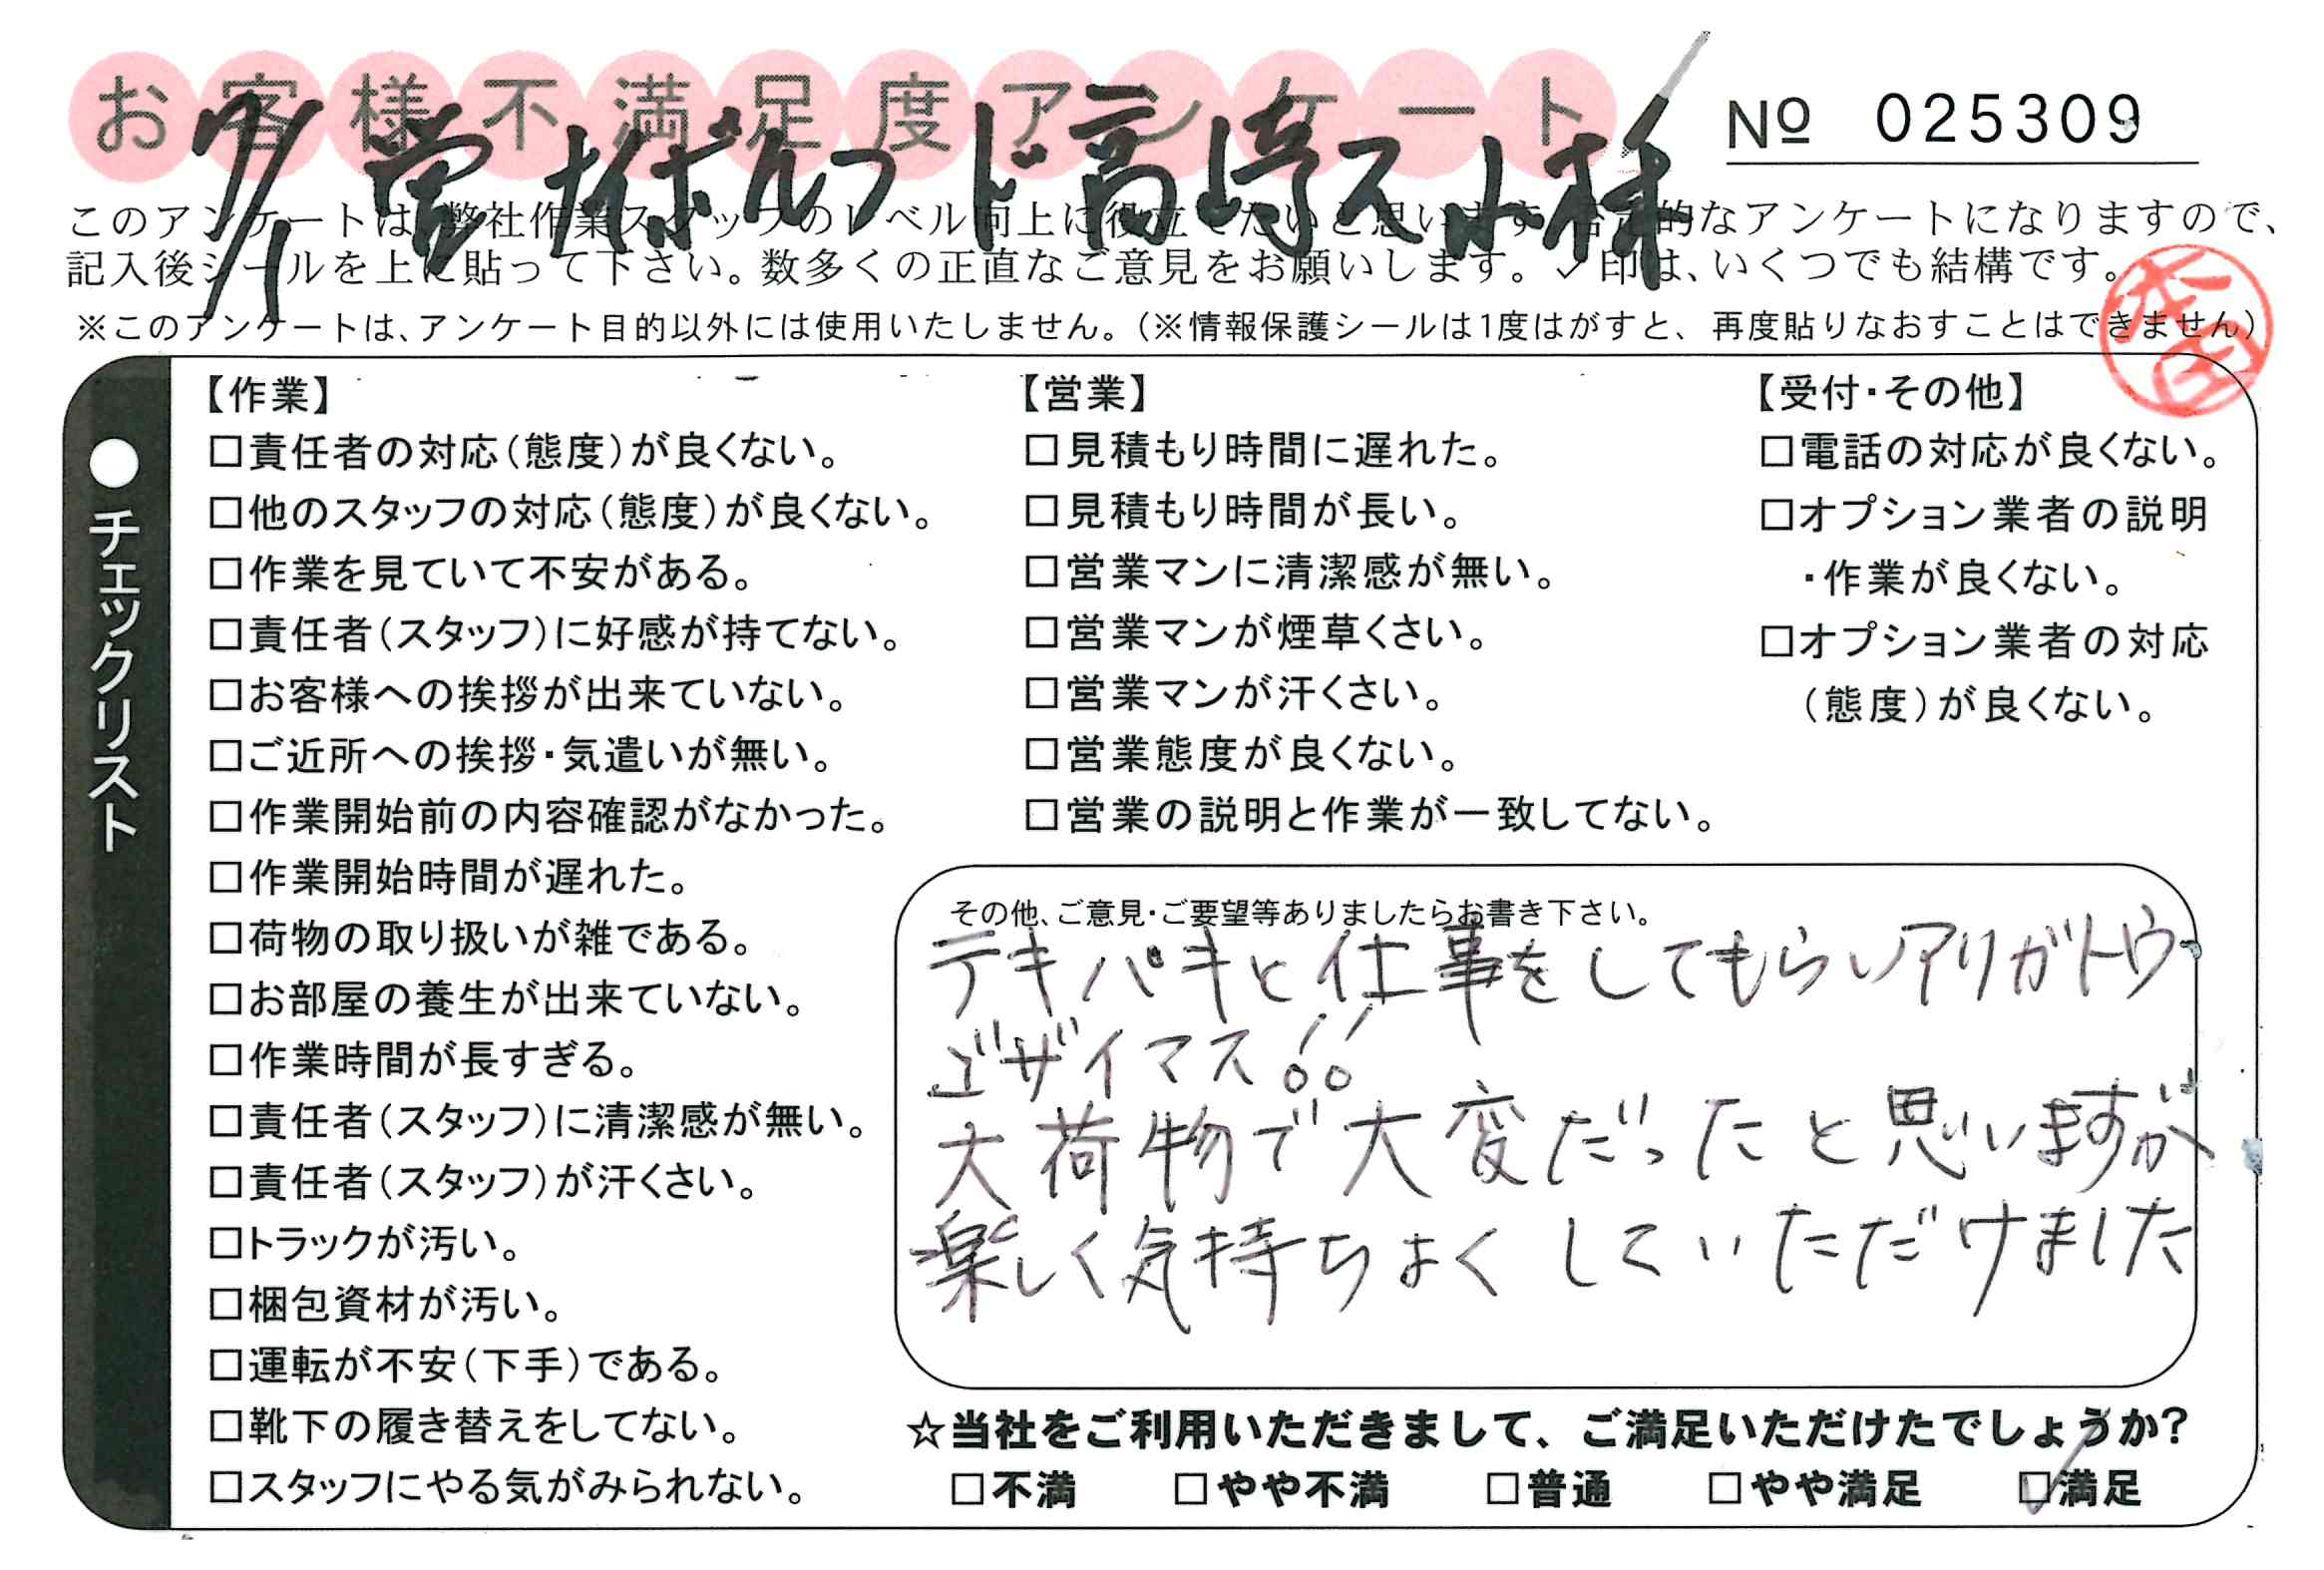 お客様不満足度アンケート
№ 025309
7/1 営 ド高崎 小林
このアンケートは、弊社作業スタッフのレベル向上に役立てたいと思います。否定的なアンケートになりますので、
記入後シールを上に貼って下さい。数多くの正直なご意見をお願いします。✓印は、いくつでも結構です。
※このアンケートは、アンケート目的以外には使用いたしません。(※情報保護シールは1度はがすと、再度貼りなおすことはできません)
●チェックリスト
【作業】
□責任者の対応(態度)が良くない。
□他のスタッフの対応(態度)が良くない。
□作業を見ていて不安がある。
□責任者(スタッフ)に好感が持てない。
□お客様への挨拶が出来ていない。
□ご近所への挨拶・気遣いが無い。
□作業開始前の内容確認がなかった。
□作業開始時間が遅れた。
□荷物の取り扱いが雑である。
□お部屋の養生が出来ていない。
□作業時間が長すぎる。
□責任者(スタッフ)に清潔感が無い。
□責任者(スタッフ)が汗くさい。
□トラックが汚い。
□梱包資材が汚い。
□運転が不安(下手)である。
□靴下の履き替えをしてない。
□スタッフにやる気がみられない。
【営業】
□見積もり時間に遅れた。
□見積もり時間が長い。
□営業マンに清潔感が無い。
□営業マンが煙草くさい。
□営業マンが汗くさい。
□営業態度が良くない。
□営業の説明と作業が一致してない。
【受付・その他】
□電話の対応が良くない。
□オプション業者の説明
・作業が良くない。
□オプション業者の対応
(態度)が良くない。
その他、ご意見・ご要望等ありましたらお書き下さい。
テキパキと仕事をしてもらいアリガトウ
ゴザイマス!!
大荷物で大変だったと思いますが
楽しく気持ちよくしていただけました
☆当社をご利用いただきまして、ご満足いただけたでしょうか?
□不満 □やや不満 □普通 □やや満足 ☑満足